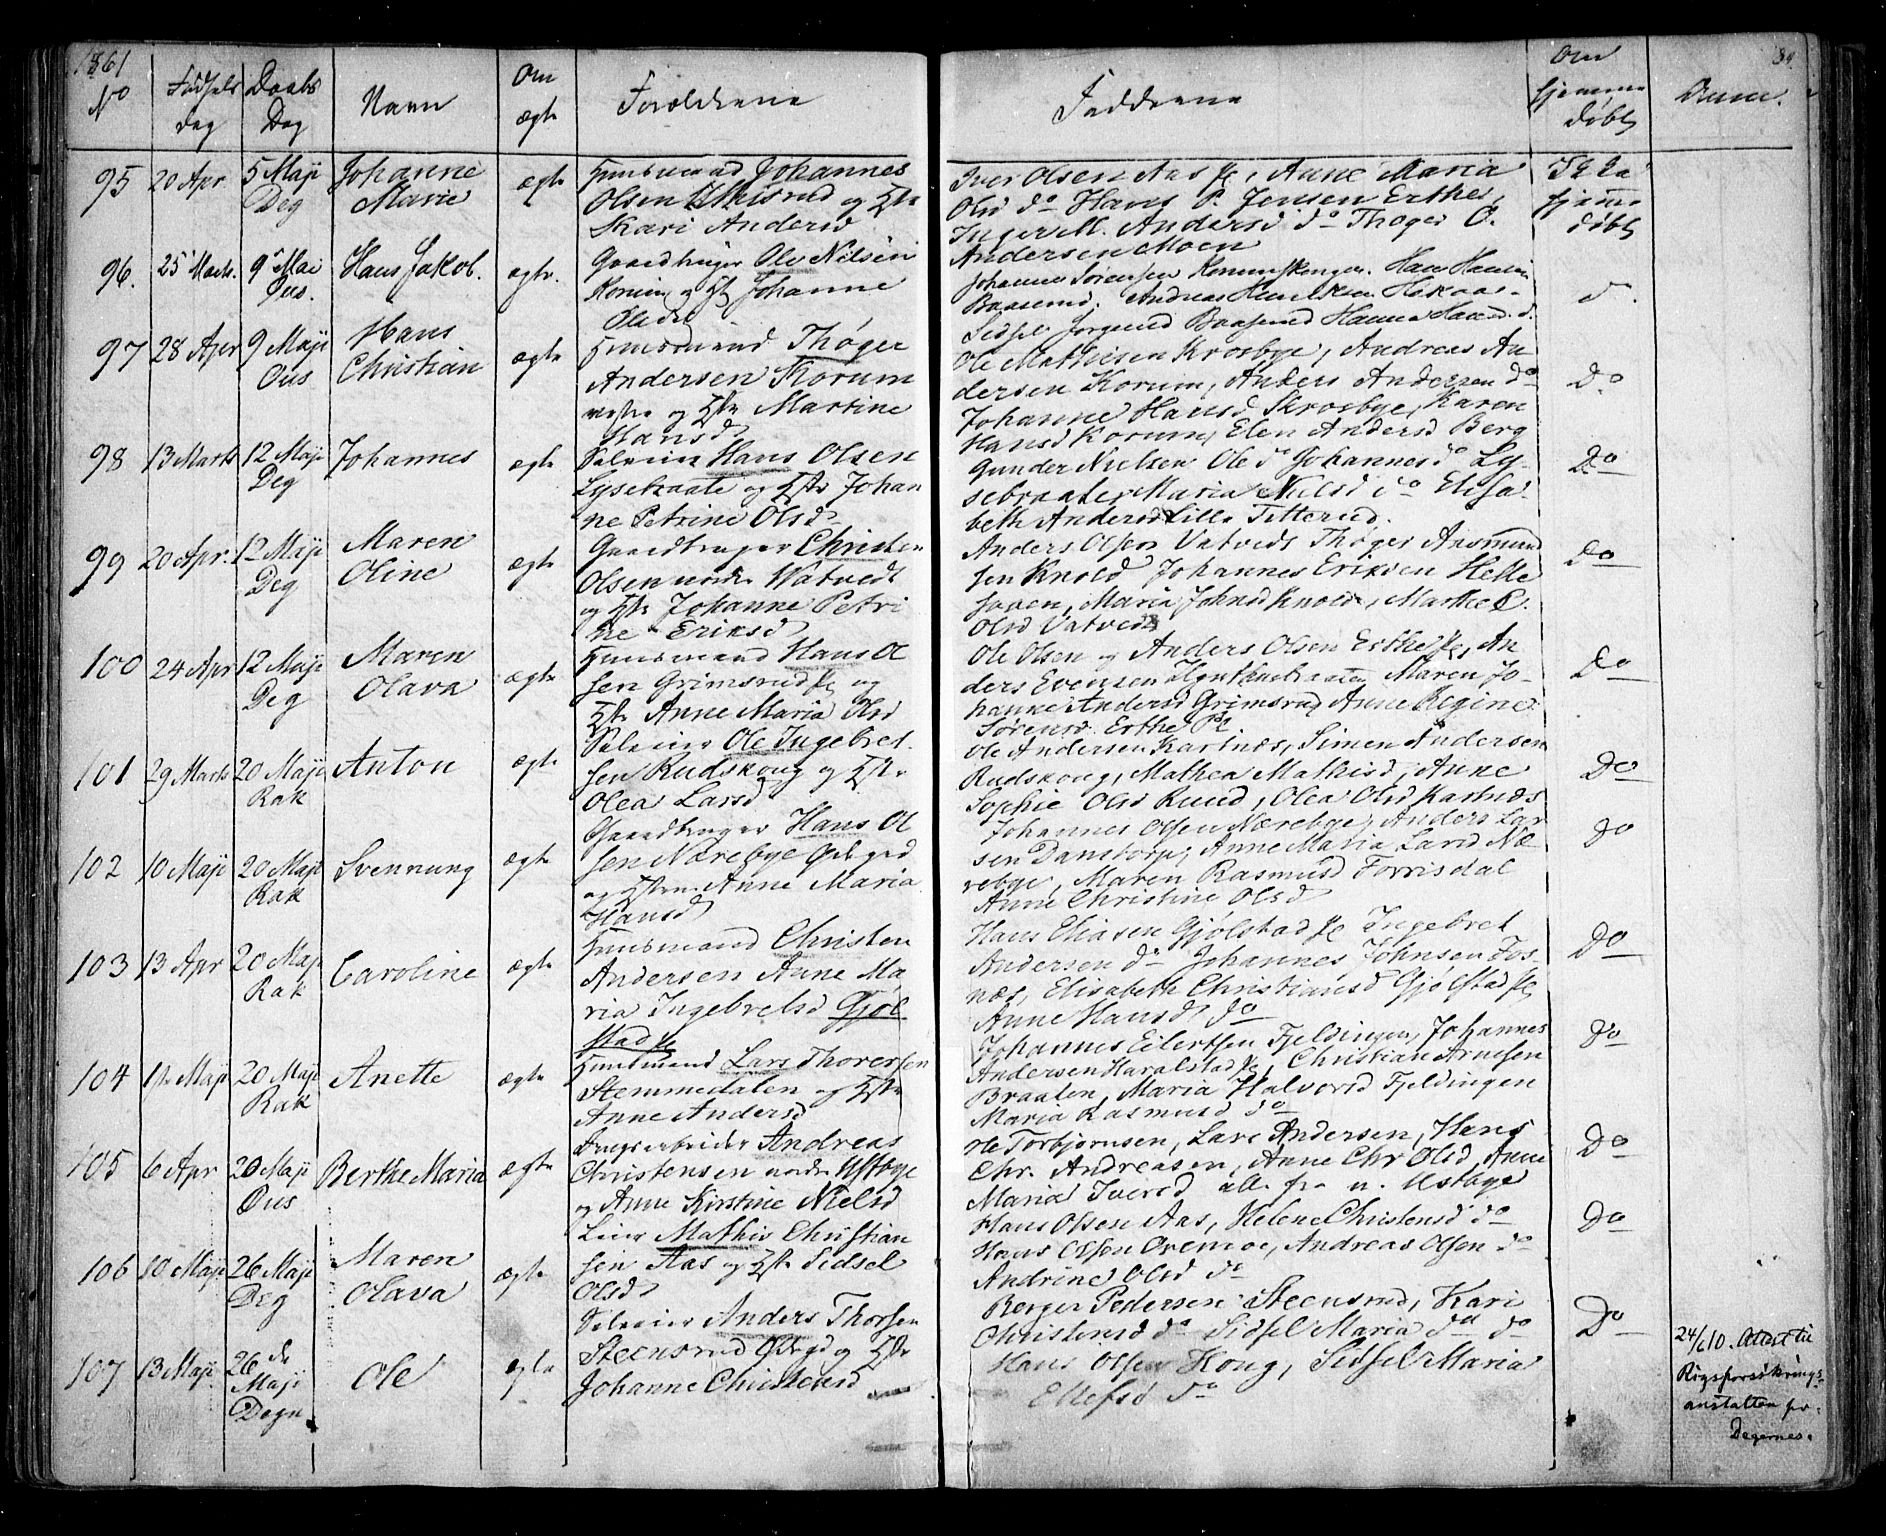 1861
No
Fødsels dag
Daabs Dag
Navn
Om ægte
Forældrene
Fadderne
Om hjemme døbt
Anm.
95 20 Apr 5 Maji Deg Johanne Marie ægte
Huusmand Johannes
Olsen og Hst
Kari Andersd
Iver Olsen Aas Anne Maria
Olsd do Hans P. Jensen Erthe,
Inger M. Andersd do Thøger O.
Andersen Moen
hjemme
døbt
96. 25 Marts. 9 Mai Øus. Hans Jakob. ægte.
Gaardbruger Ole Nilsen
Korum og H Johanne
Johannes Sørensen Hans Hansen
Baaserud. Andreas Henriksen
Sidsel Baaserud Hanna
97 28 Apr 9 Maji Øus Hans Christian ægte
Huusmand Thøger
Andersen Korum
vestre og Hst Martine
Hansd
Ole Mathisen Krosbye, Andreas An
dersen Korum, Anders Andersen do
Johanne Hansd Krosbye, Karen
Hansd Korum, Elen Andersd Berg
Do
98 13 Marts 12 Maji Deg Johannes ægte
Selveier Hans Olsen
Lysebraate og Hst Johan
ne Petrine Olsd
Gunder Nielsen Ole do Johannes do Ly-
sebraate, Maria Nielsd do Elisa-
beth Andersd Lille Titterud.
Do
99 20 Apr. 12 Maji Deg Maren Oline ægte
Gaardbruger Christen
Olsen nordre Vatvedt
og Hst Johanne Petri
ne Eriksd
Anders Olsen Vatvedt Thøger Aasmund
sen Knold Johannes Eriksen Helle
Maria Johnsd Knold, Marthe C.
Olsd Vatvedt
Do
100 24 Apr 12 Maji Deg Maren Olava ægte
Huusmand Hans Ol
sen Grimsrud og
Hst Anne Maria Olsd
Ole Olsen og Anders Olsen Erthe An
ders Evensen Maren Jo-
hanne Andersd Grimsrud Anne Regine
Sørensd Erthe
Do
101 29 Marts 20 Maji Rak Anton ægte
Selveier Ole Ingebret
sen Rudskoug og Hst
Olea Larsd
Ole Andersen Kartnæs, Simen Andersen
Rudskoug, Mathea Mathisd, Anne
Sophie Olsd Ruud, Olea Olsd Kartnæs
Do
102 10 Maji 20 Maji Rak Svennung ægte
Gaardbruger Hans Ol
sen Nærebye
og Hst Anne Maria
Hansd
Johannes Olsen Nærebye, Anders Lar
sen Danstorp, Anne Maria Larsd Næ
rebye, Maren Rasmusd Forrisdal
Anne Christine Olsd
Do
103 13 Apr 20 Maj Rak Caroline ægte
Huusmand Christen
Andersen Anne Ma
ria Ingebretsd Gjøl
stad
Hans Eliasen Gjølstad Ingebret
Andersen do Johannes Johnsen Fos
næs, Elisabeth Christiansd Gjølstad
Anne Hansd do
Do
104 Maji 20 Maji Rak Anette ægte
Huusmand Lars Thoresen
Stemmedalen og Hst
Anne Andersd
Johannes Eilertsen Fjeldingen, Johannes
Andersen Haralstad Christian Arnesen
Braaten, Maria Halvorsd Fjeldingen
Maria Rasmusd do
Do
105 6 Apr 20 Maji Øus Berthe Maria ægte
Brugsarbeider Andreas
Christensen nordre Ustbye
og Anne Kirstine Nielsd
Ole Torbjørnsen, Lars Andersen, Hans
Chr. Andreasen, Anne Chr Olsd Anne
Maria Iversd alle fra n. Ustbye
Do
106 10 Maji 26 Maji Deg Maren Olava ægte
Leier Mathis Christian
sen Aas og Hst Sidsel
Olsd
Hans Olsen Aas, Helene Christensd do
Hans Olsen Andreas Olsen do
Andrine Olsd do
Do
107 13 Maji 26 de Maji Degn Ole ægte
Selveier Anders Thorsen
Steensrud og Hst
Johanne Christensd
Borger Pedersen Steensrud, Kari
Christensd do Sidsel Maria do do
Hans Olsen Houg, Sidsel Maria
Ellefsd do
Do
24/6 10. Attest til
Rigsforsikrings-
anstalten fr.
Degernes.